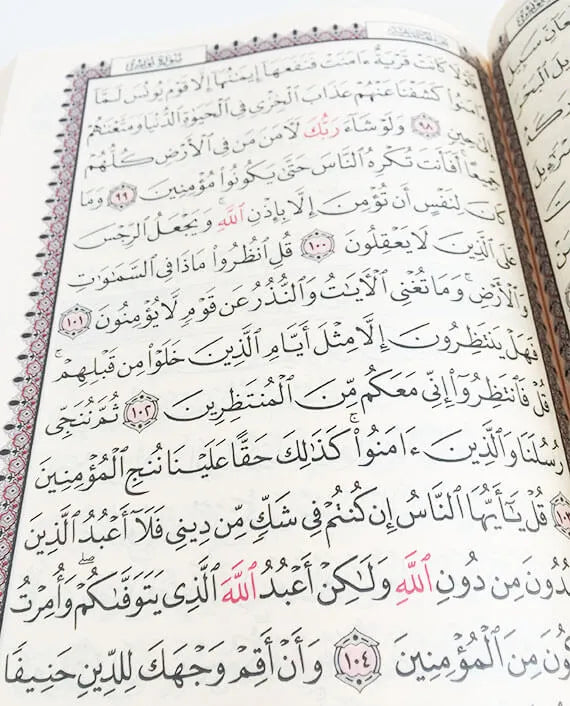 سُورَةُ يُونُسَ
فَلَوْلَا كَانَتْ قَرْيَةٌ ءَامَنَتْ فَنَفَعَهَآ إِيمَٰنُهَآ إِلَّا قَوْمَ يُونُسَ لَمَّآ
ءَامَنُوا۟ كَشَفْنَا عَنْهُمْ عَذَابَ ٱلْخِزْىِ فِى ٱلْحَيَوٰةِ ٱلدُّنْيَا وَمَتَّعْنَٰهُمْ
إِلَىٰ حِينٍ ٩٨ وَلَوْ شَآءَ رَبُّكَ لَءَامَنَ مَن فِى ٱلْأَرْضِ كُلُّهُمْ
جَمِيعًا ۚ أَفَأَنتَ تُكْرِهُ ٱلنَّاسَ حَتَّىٰ يَكُونُوا۟ مُؤْمِنِينَ ٩٩ وَمَا
كَانَ لِنَفْسٍ أَن تُؤْمِنَ إِلَّا بِإِذْنِ ٱللَّهِ ۚ وَيَجْعَلُ ٱلرِّجْسَ
عَلَى ٱلَّذِينَ لَا يَعْقِلُونَ ١٠٠ قُلِ ٱنظُرُوا۟ مَاذَا فِى ٱلسَّمَٰوَٰتِ
وَٱلْأَرْضِ ۚ وَمَا تُغْنِى ٱلْءَايَٰتُ وَٱلنُّذُرُ عَن قَوْمٍ لَّا يُؤْمِنُونَ ١٠١
فَهَلْ يَنتَظِرُونَ إِلَّا مِثْلَ أَيَّامِ ٱلَّذِينَ خَلَوْا۟ مِن قَبْلِهِمْ ۚ
قُلْ فَٱنتَظِرُوٓا۟ إِنِّى مَعَكُم مِّنَ ٱلْمُنتَظِرِينَ ١٠٢ ثُمَّ نُنَجِّى
رُسُلَنَا وَٱلَّذِينَ ءَامَنُوا۟ ۚ كَذَٰلِكَ حَقًّا عَلَيْنَا نُنجِ ٱلْمُؤْمِنِينَ
١٠٣ قُلْ يَٰٓأَيُّهَا ٱلنَّاسُ إِن كُنتُمْ فِى شَكٍّ مِّن دِينِى فَلَآ أَعْبُدُ ٱلَّذِينَ
بُدُونَ مِن دُونِ ٱللَّهِ وَلَٰكِنْ أَعْبُدُ ٱللَّهَ ٱلَّذِى يَتَوَفَّىٰكُمْ ۖ وَأُمِرْتُ
كُونَ مِنَ ٱلْمُؤْمِنِينَ ١٠٤ وَأَنْ أَقِمْ وَجْهَكَ لِلدِّينِ حَنِيفًا